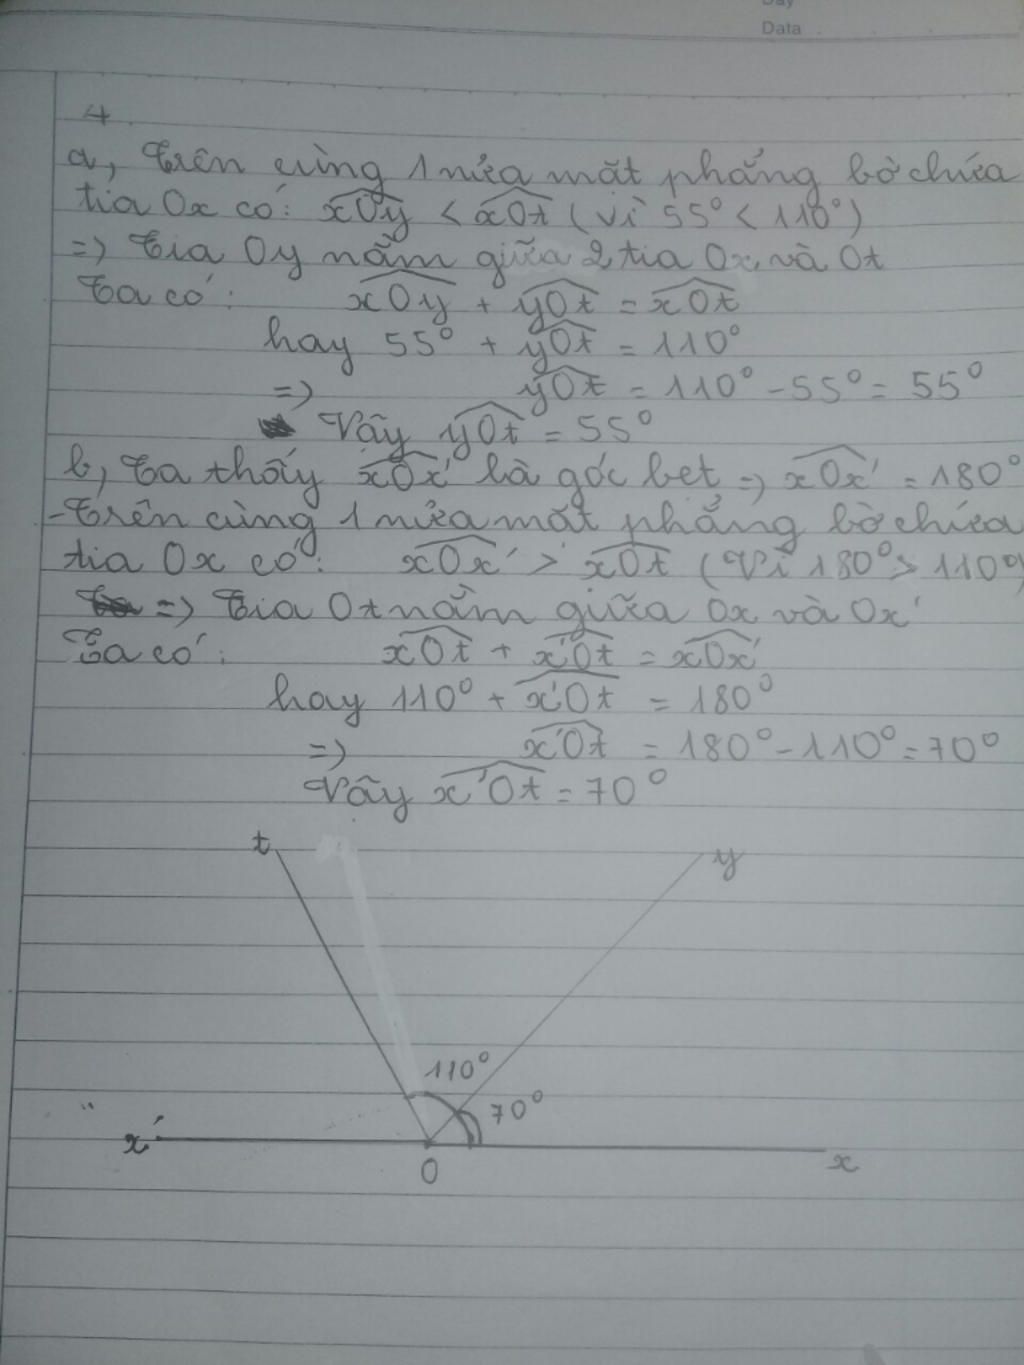 Day
Data
4
a, Trên cùng 1 nửa mặt phẳng bờ chứa
tia Ox có: xOy < xOt (vì 55° < 110°)
=> Tia Oy nằm giữa 2 tia Ox và Ot
Ta có: xOy + yOt = xOt
hay 55° + yOt = 110°
=> yOt = 110° - 55° = 55°
Vậy yOt = 55°
b, Ta thấy xOx' là góc bet => xOx' = 180°
- Trên cùng 1 nửa mặt phẳng bờ chứa
tia Ox có: xOx' > xOt (Vì 180° > 110°)
=> Tia Ot nằm giữa Ox và Ox'
Ta có: xOt + x'Ot = xOx'
hay 110° + x'Ot = 180°
=> x'Ot = 180° - 110° = 70°
Vậy x'Ot = 70°
t y
110°
70°
x' x
O